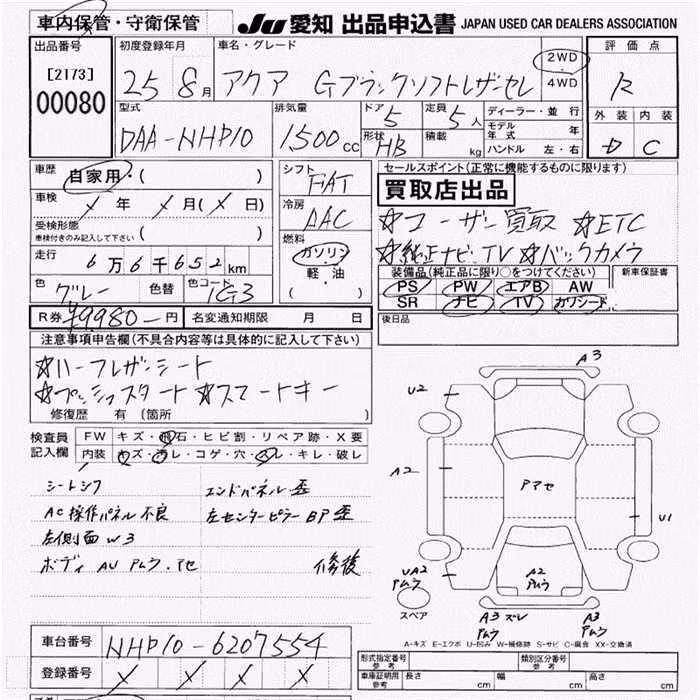 車内保管・守衛保管
JU 愛知 出品申込書 JAPAN USED CAR DEALERS ASSOCIATION
出品番号 初度登録年月 車名・グレード 2WD 評価点
[2173] 25 8月 アクア Gブラックソフトレザーセレ 4WD R
00080 外装 内装
型式 排気量 ドア 5 定員 5人 ディーラー・並行 D C
DAA-NHP10 1500cc 形状 HB 積載 kg モデル年式 年
ハンドル 左・右
車歴 自家用・( ) シフト FAT セールスポイント(正常に機能するものに限ります)
車検 X年 X月(X日) 冷房 AAC 買取店出品
受検形態 ☆ユーザー買取 ☆ETC
車検付きのみ記入して下さい ( ) 燃料 ☆純正ナビ TV ☆バックカメラ
走行 6万6千652km ガソリン 装備品(純正品に限り○をつけてください) 新車保証書
軽・油 PS PW エアB AW
色 グレー 色替 色コード 1G3 ( ) SR ナビ TV カワシート
R券 ¥9980-円 名変通知期限 月 日 後日品
注意事項申告欄(不具合内容等は具体的に記入して下さい)
☆ハーフレザーシート
☆プッシュスタート ☆スマートキー
修復歴 有(箇所 )
検査員 FW キズ・飛石・ヒビ割・リペア跡・X要
記入欄 内装 キズ・汚レ・コゲ・穴・スレ・キレ・破レ
シートシワ エンドパネル歪
AC操作パネル不良 左センターピラーBP歪
左側面W3
ボディ AU Pムラ.アセ 修復
A3
U2
A2 Pアセ
U1
UA2 Pムラ A2 Pムラ
スペア A3 ズレ Pムラ A3 Pムラ
A-キズ E-エクボ U-凹み W-補修跡 S-サビ C-腐食 XX-交換済
車台番号 NHP10-6207554
登録番号 X X X X
形式指定番号 参考 類別区分番号 参考
車庫証明用 参考 長さ cm 幅 cm 高さ cm